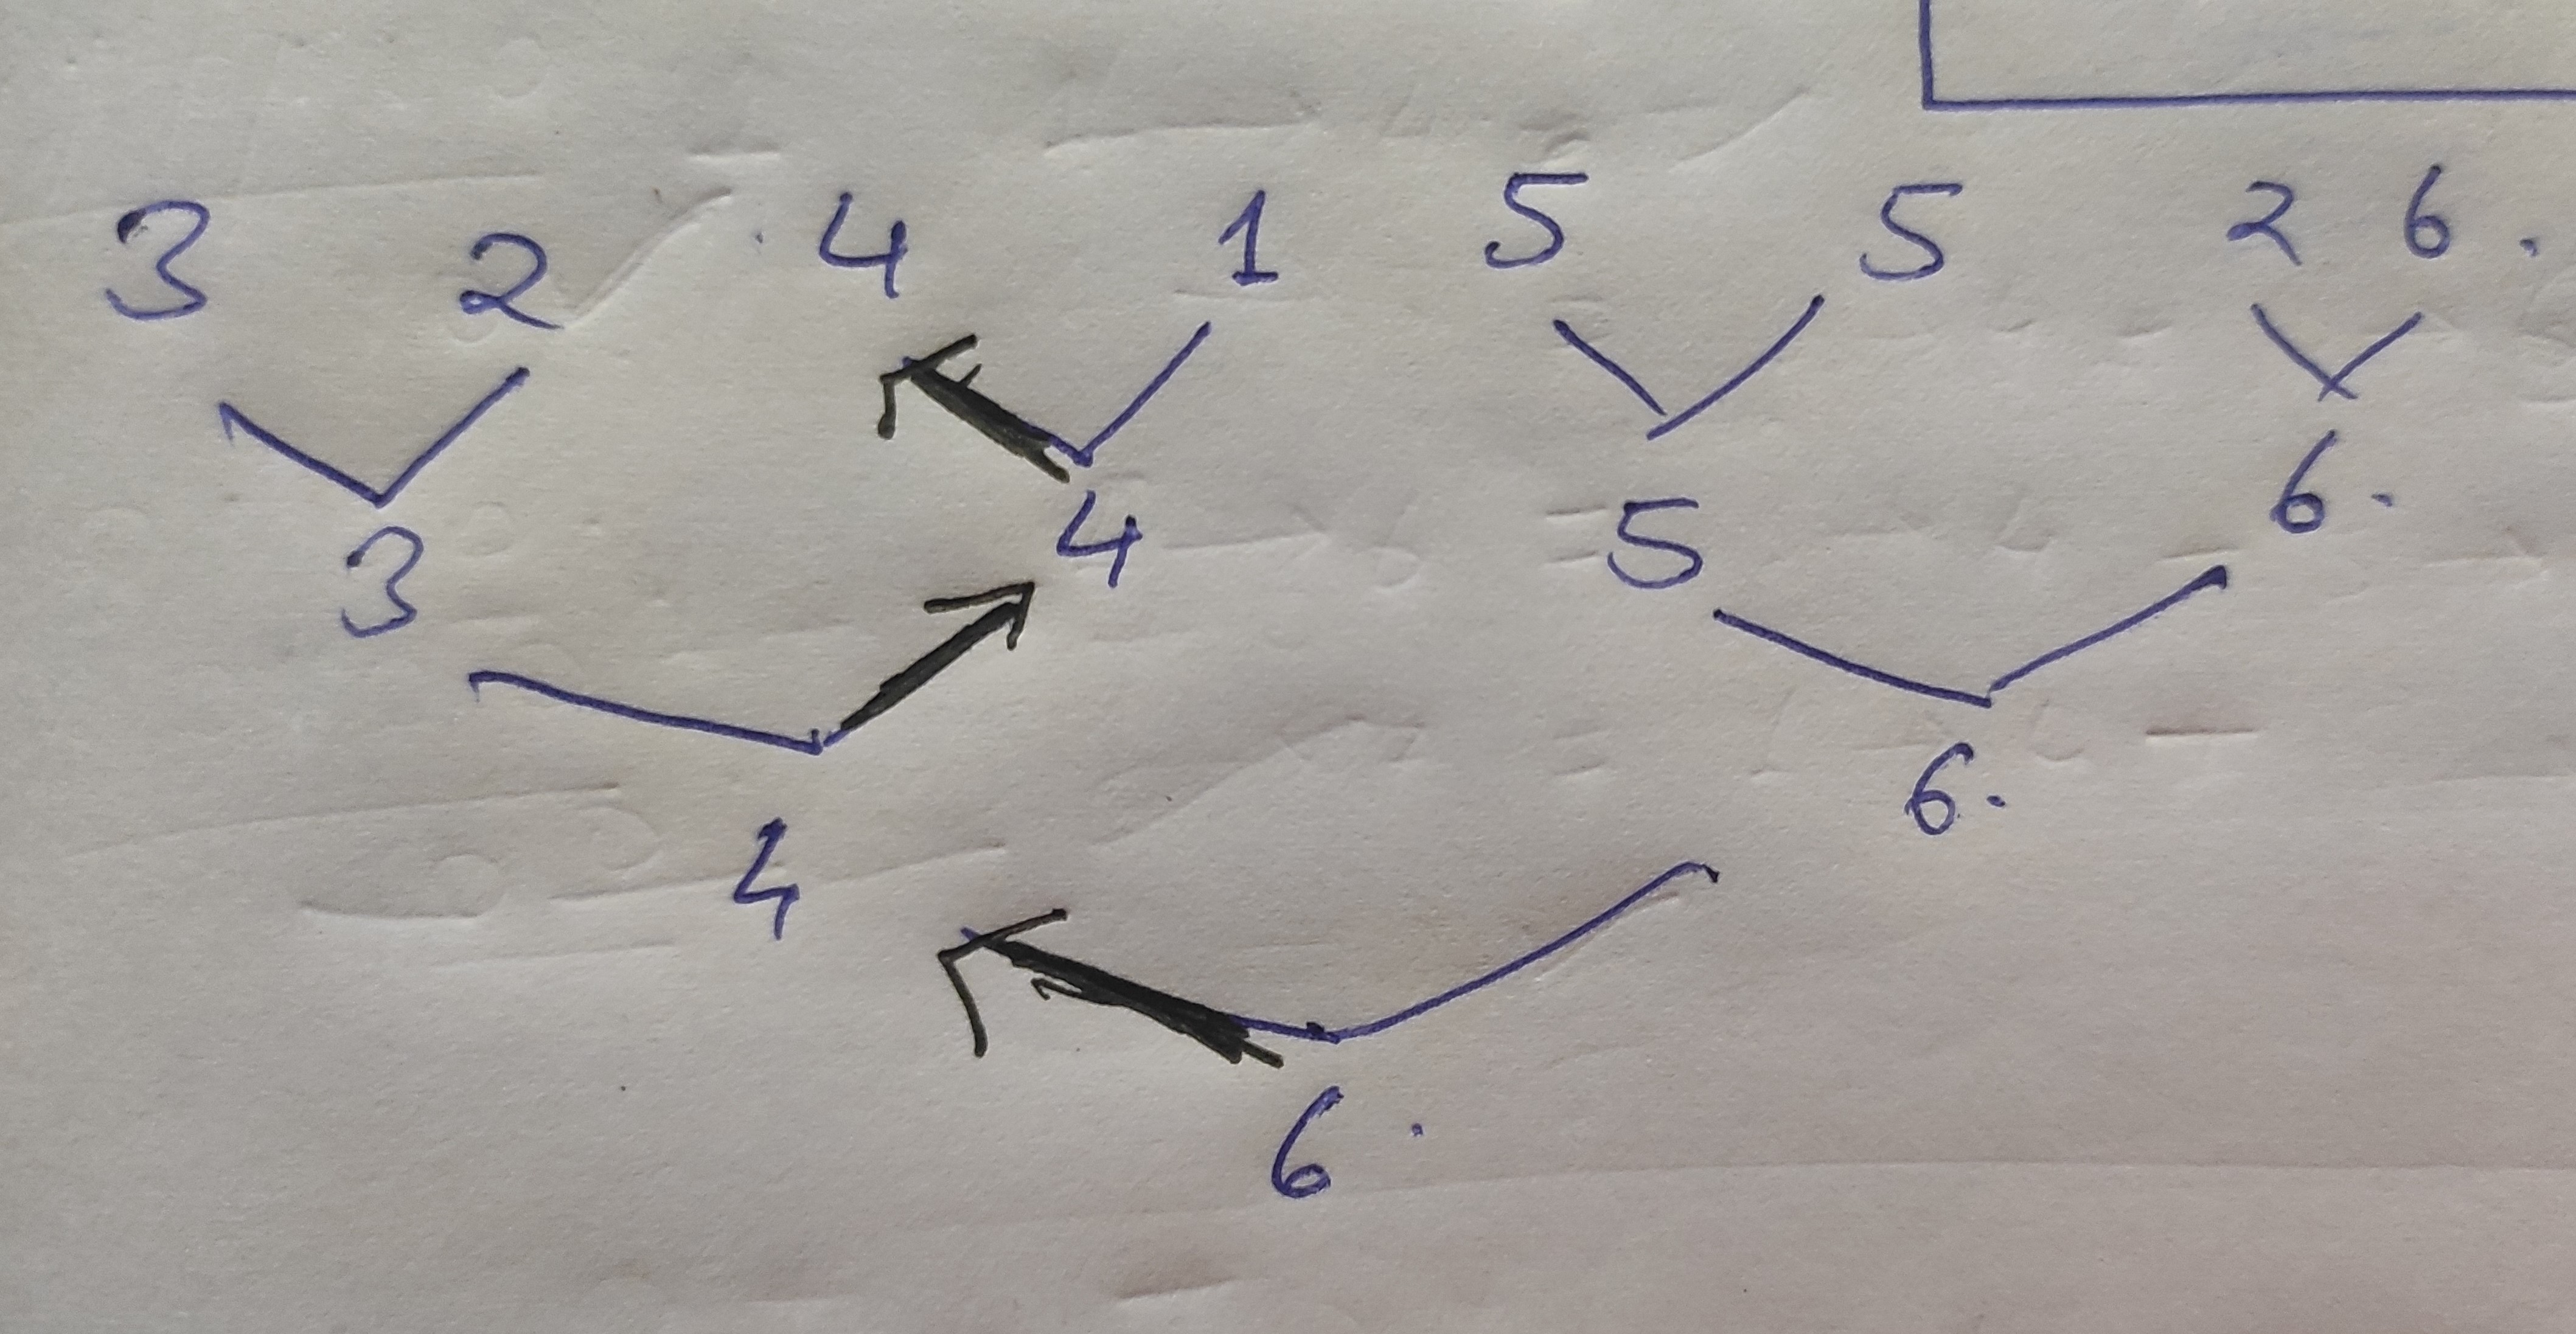 3 2 4 1 5 5 2 6.
3 4 5 6.
4 6.
6.